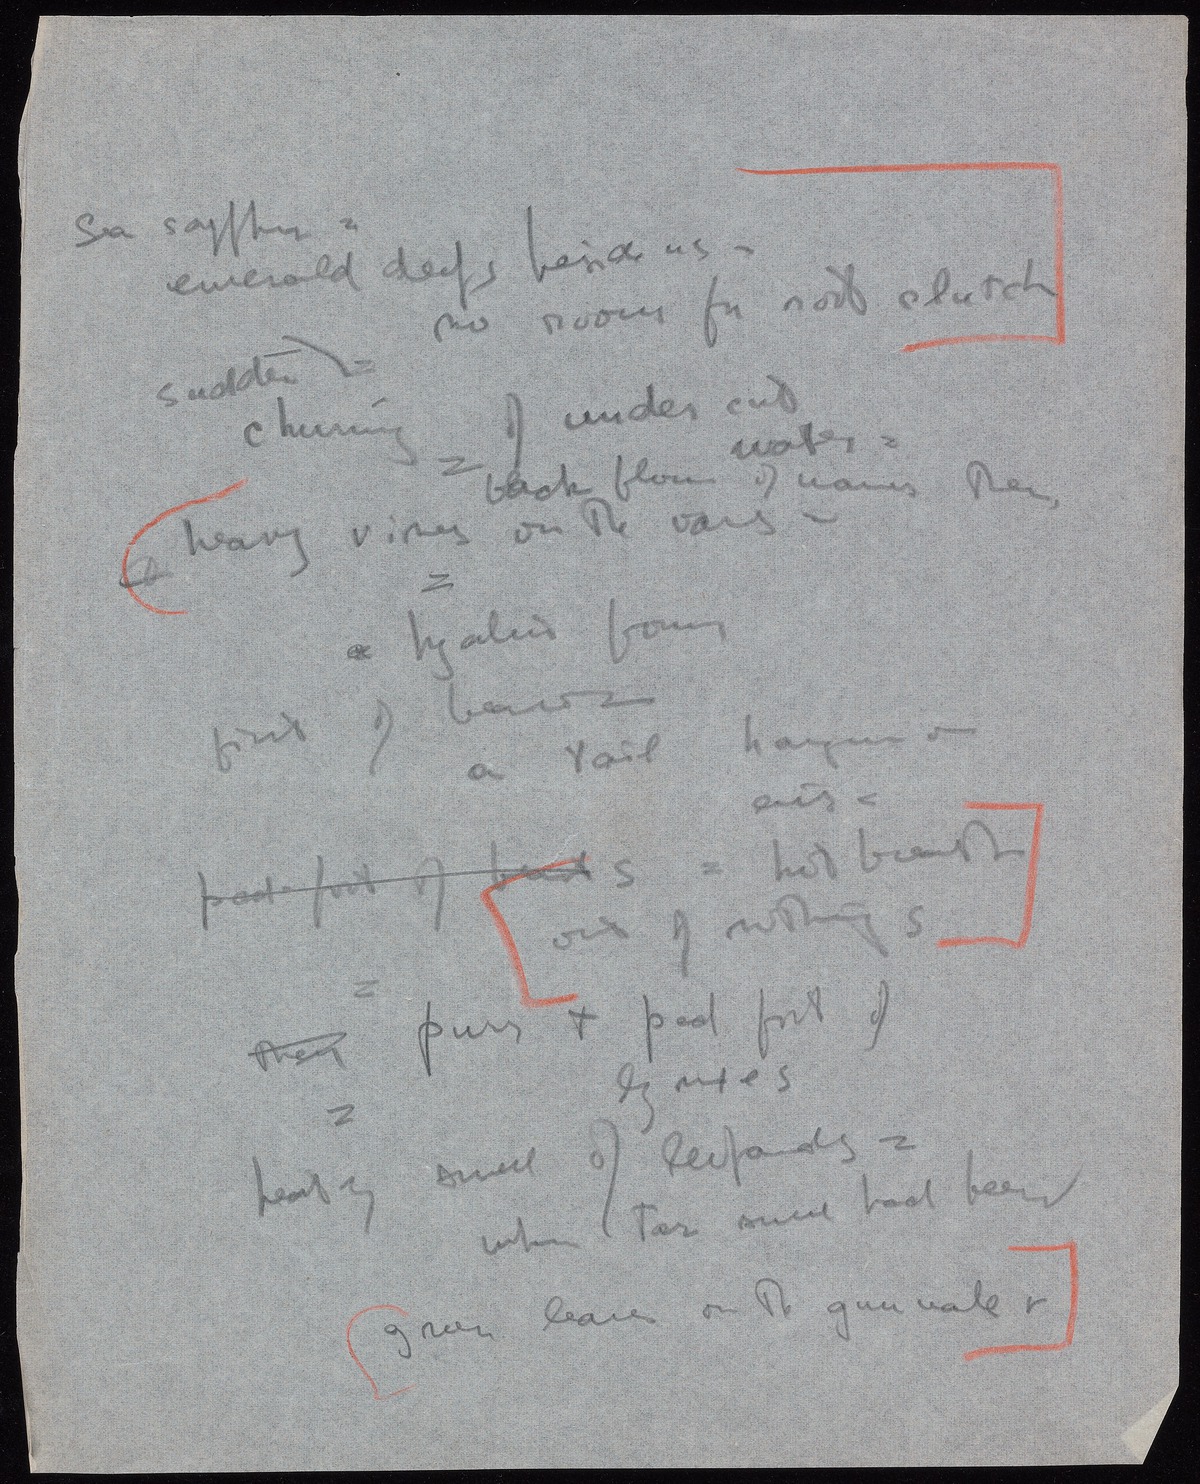 Sea sapphire =
emerald deeps beside us -
no room for root clutch
sudden =
churning of under cut
water =
= back flow of waves then,
heavy vines on the oars -
=
a hyaline
first of beasts
a tail hanging on
air =
pad foot of beasts = hot breath
out of nothings
=
then purrs + pad foot of
lynxes
=
heavy smell of leopards =
when Tar smell had been
green leaves on the gunwale r